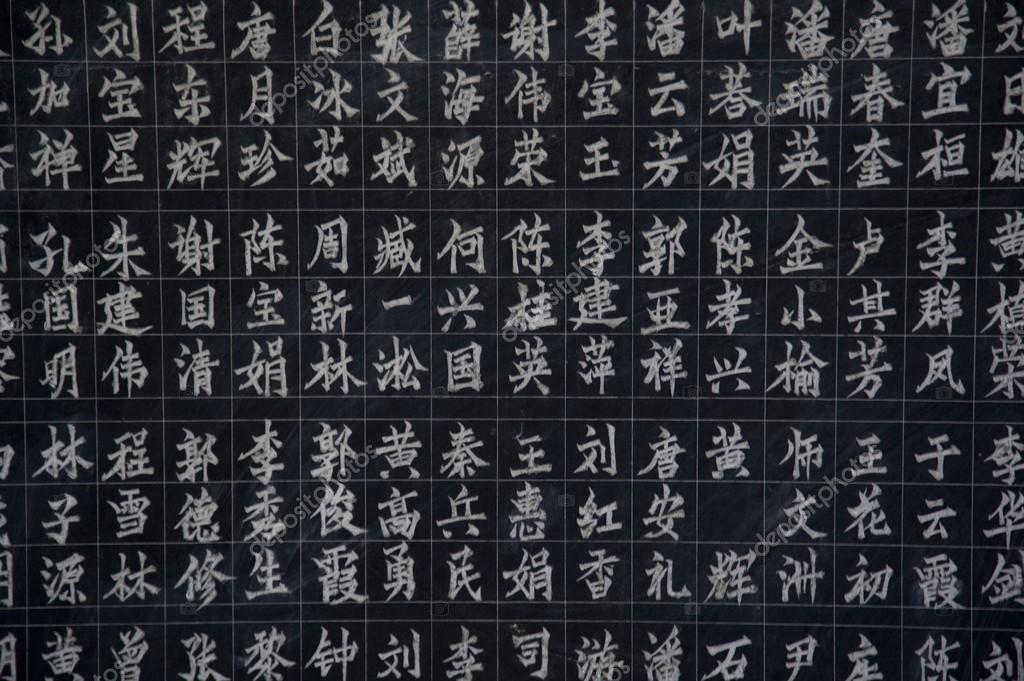 孙加禅
刘宝星
程东辉
唐月珍
白冰茹
张文斌
薛海源
谢伟荣
李宝玉
潘云芳
叶茖娟
潘瑞英
唐春奎
潘宜桓
刘日雄
孔国明
朱建伟
谢国清
陈宝娟
周新林
臧一淞
何兴国
陈桂英
李建萍
郭亚祥
陈孝兴
金小榆
卢其芳
李群凤
黄植荣
林子源
程雪林
郭德修
李秀生
郭俊霞
黄高勇
秦兵民
王惠娟
刘红香
唐安礼
黄辉
师文洲
王花初
于云霞
李华剑
黄
曾
张
黎
钟
刘
李
司
游
潘
石
尹
陈
刘
depositphotos